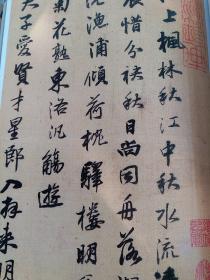 上楓林秋江中秋水流
晨惜分袂秋日尚同舟落
洗漁浦傾荷枕驛樓明
菊花熟東洛汎觴遊
天子愛賢才星郎入来明